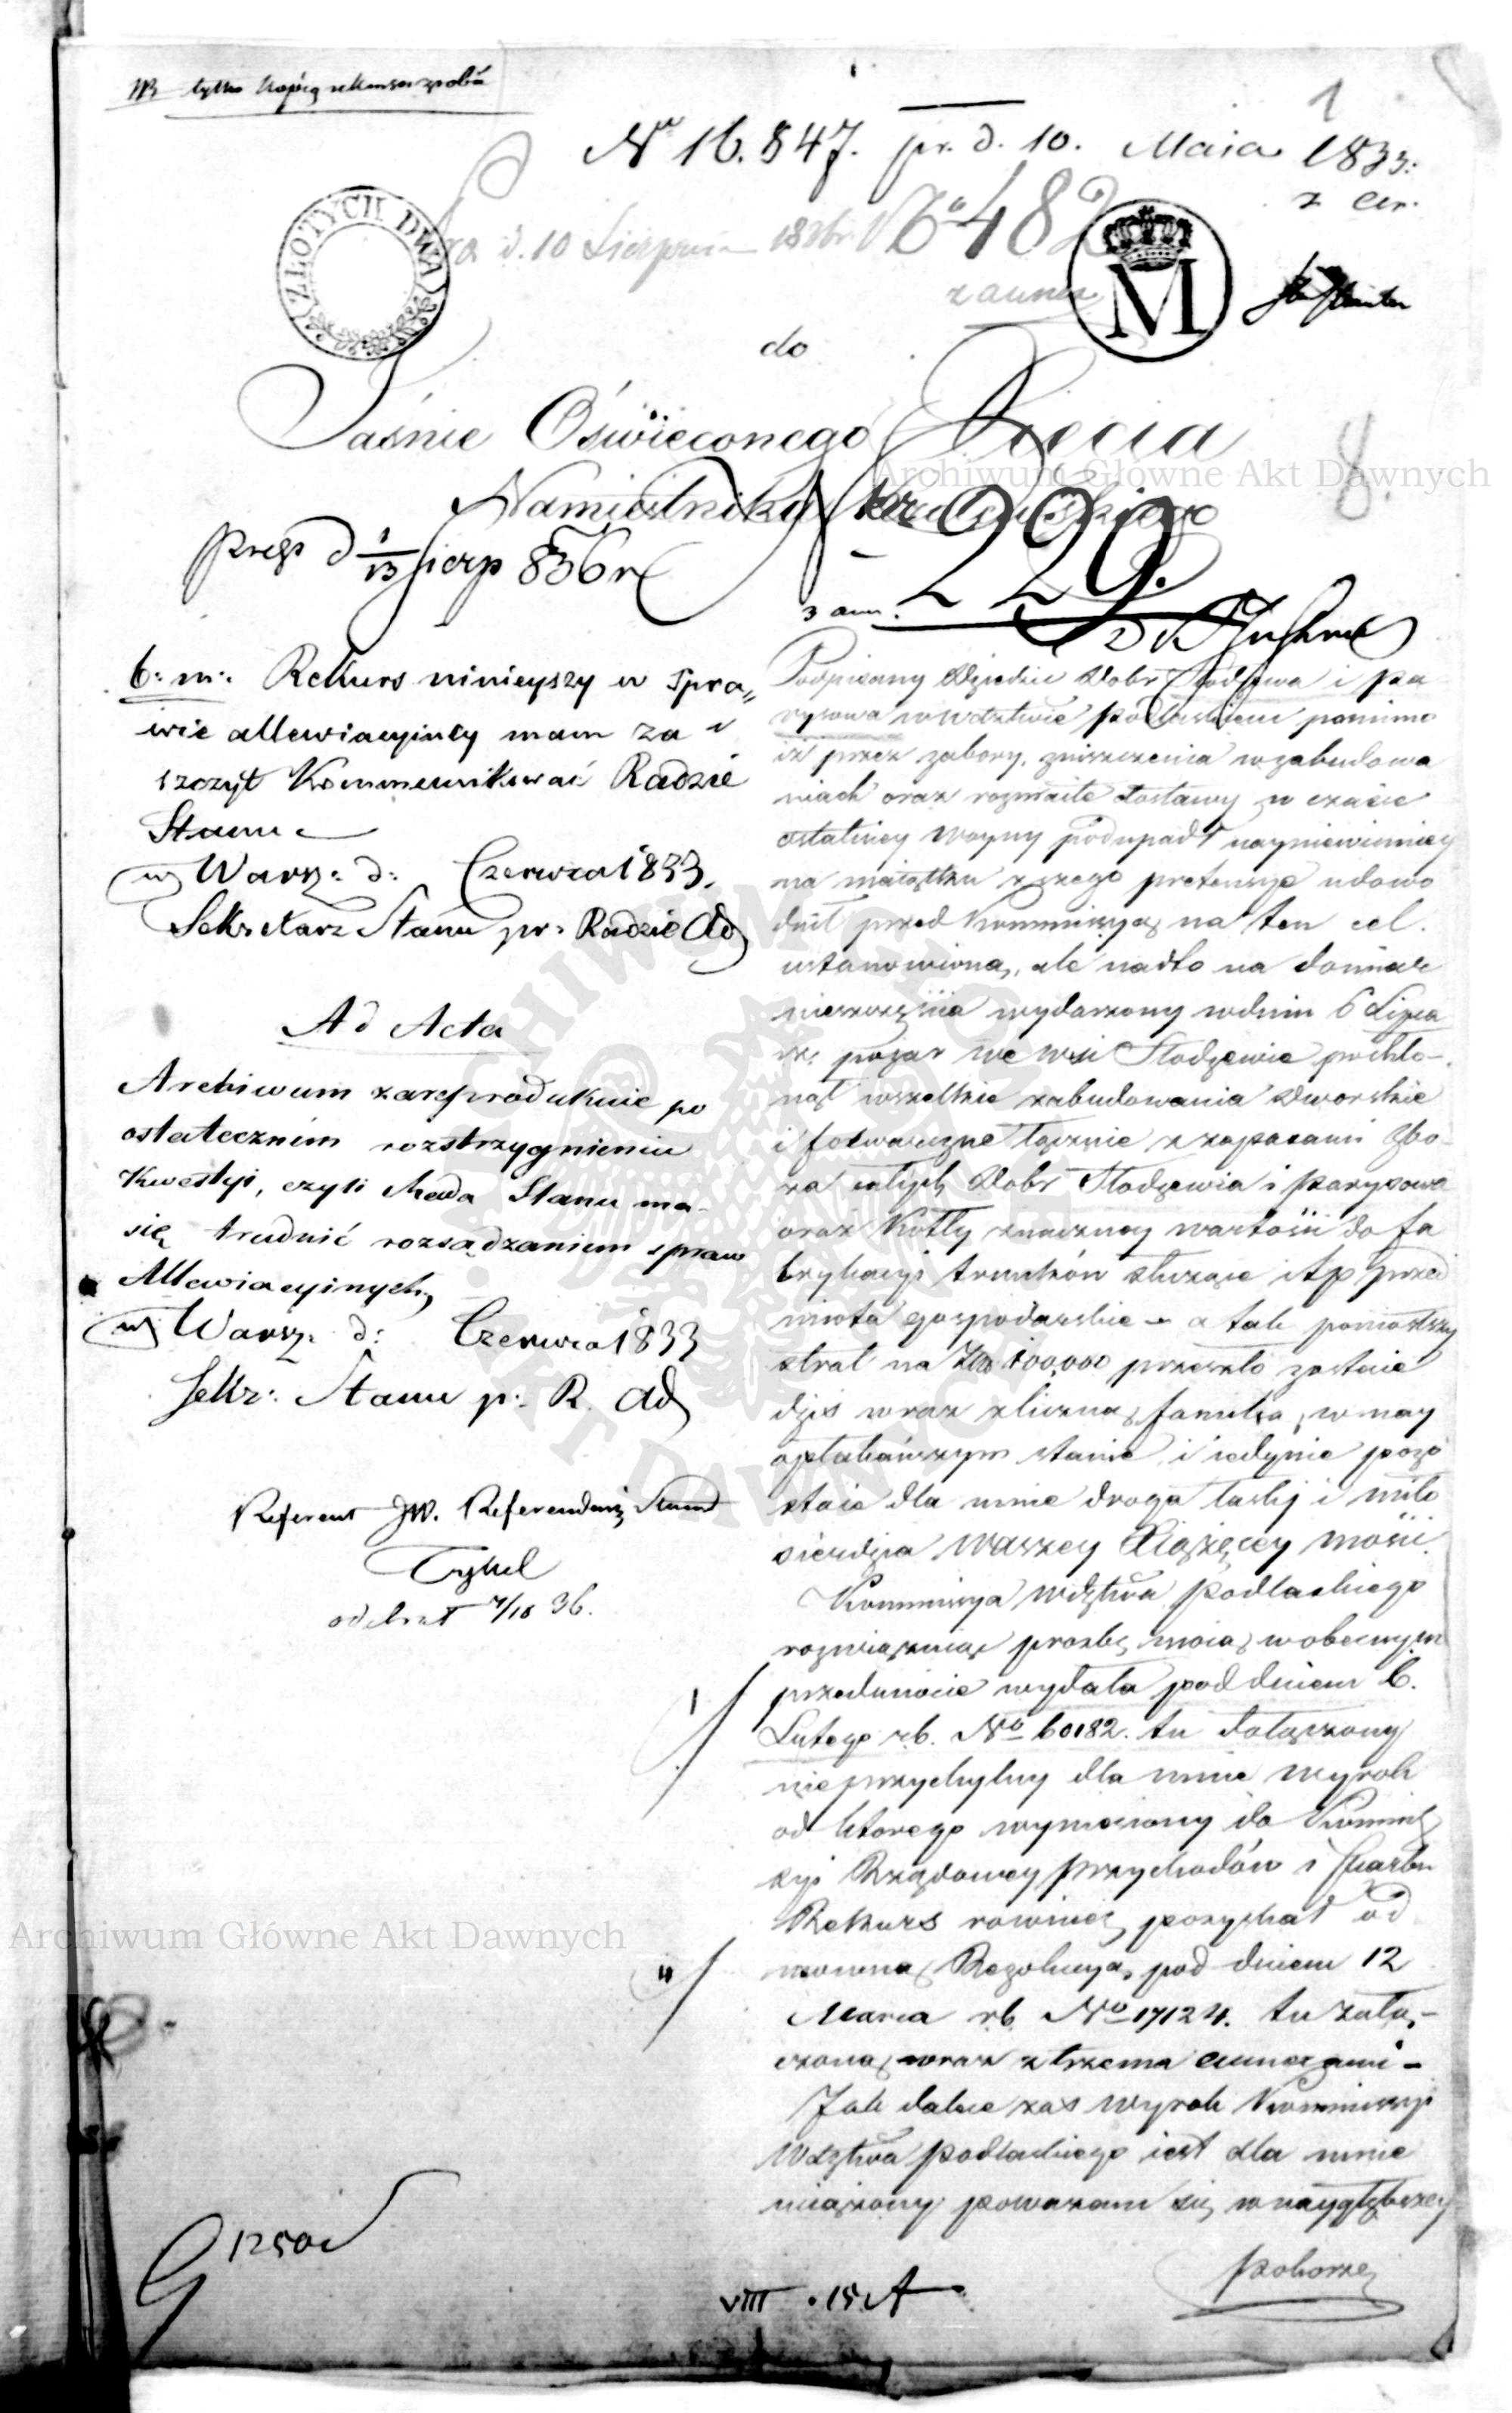 NB tylko kopią rekursu zrobić
1
Nr 16.847. pr. d. 10. Maia 1833.
z ex.
ZŁOTYCH DWA
d. 10 Sierpnia 1836r No 482
z annex
M
do
Jaśnie Oświeconego Xięcia
Namiestnika Królewskiego
8.
przs d 1/13 Sierp 836 r
229.
3 ann.
b: m: Rekurs ninieyszy w spra„
wie allewiacyiney mam za
szczyt Kommunikować Radzie
Stanu
w Warsz: d: Czerwca 1833.
Sekretarz Stanu pr: Radzie Ad
Ad Acta
Archiwum zareprodukuie po
ostatecznem rozstrzygnieniu
kwestyi, czyli Rada Stanu ma
się trudnić rozsądzaniem spraw
Allewiacyinych,
w Warsz: d: Czerwca 1833
Sekr: Stanu p: R. Ad
Referent JW. Referendarz Stanu
Tykel
odebrał 4/10 36.
Podpisany Dziedzic Dobr Stodzewa i Pa
rysowa w Wdztwie Podlaskiem pomimo
iż przez zabory, zniszczenia w zabudowa
niach oraz rozmaite dostawy w czasie
ostatniey woyny podupadł nayniewinniey
na maiątku z czego pretensye udowo
dnił przed Kommissyą na ten cel
ustanowioną, ale nadto na domiar
nieszczęścia wydarzony w dniu 6 Lipca
pożar we wsi Stodzewie pochło-
nął wszelkie zabudowania dworskie
i folwarczne łącznie z zapasami Zbo-
ża całych Dobr Stodzewia i Parysowa
oraz Kotły znaczney wartości do fa
brykacyi trunków służące itp przed
miota gospodarskie - a tak poniosłszy
strat na Złp 100,000 przeszło zostaie
dziś wraz z liczną familią, w nay
opłakańszym stanie i iedynie pozo
staie dla mnie droga łaski i miło
sierdzia Waszey Xiążęcey Mości.
Kommissya Wdztwa Podlaskiego
rozwiązuiąc prozbę moią w obecnym
przedmiocie wydała pod dniem 6.
Lutego r.b. No 60182. tu dołączony
nieprzychylny dla mnie wyrok
od ktorego wyniesiony do Kommis
syi Rządowey Przychodów i Skarbu
Rekurs rownież pozyskał od
mowną Rezolucyą, pod dniem 12
Marca r.b. No 17124. tu załą-
czoną wraz z trzema annexami -
Jak dalece zaś wyrok Kommissyi
Wdztwa Podlaskiego iest dla mnie
uciążony poważam się w naygłębszey
pokorze
VIII . 15 A
Archiwum Główne Akt Dawnych
Archiwum Główne Akt Dawnych